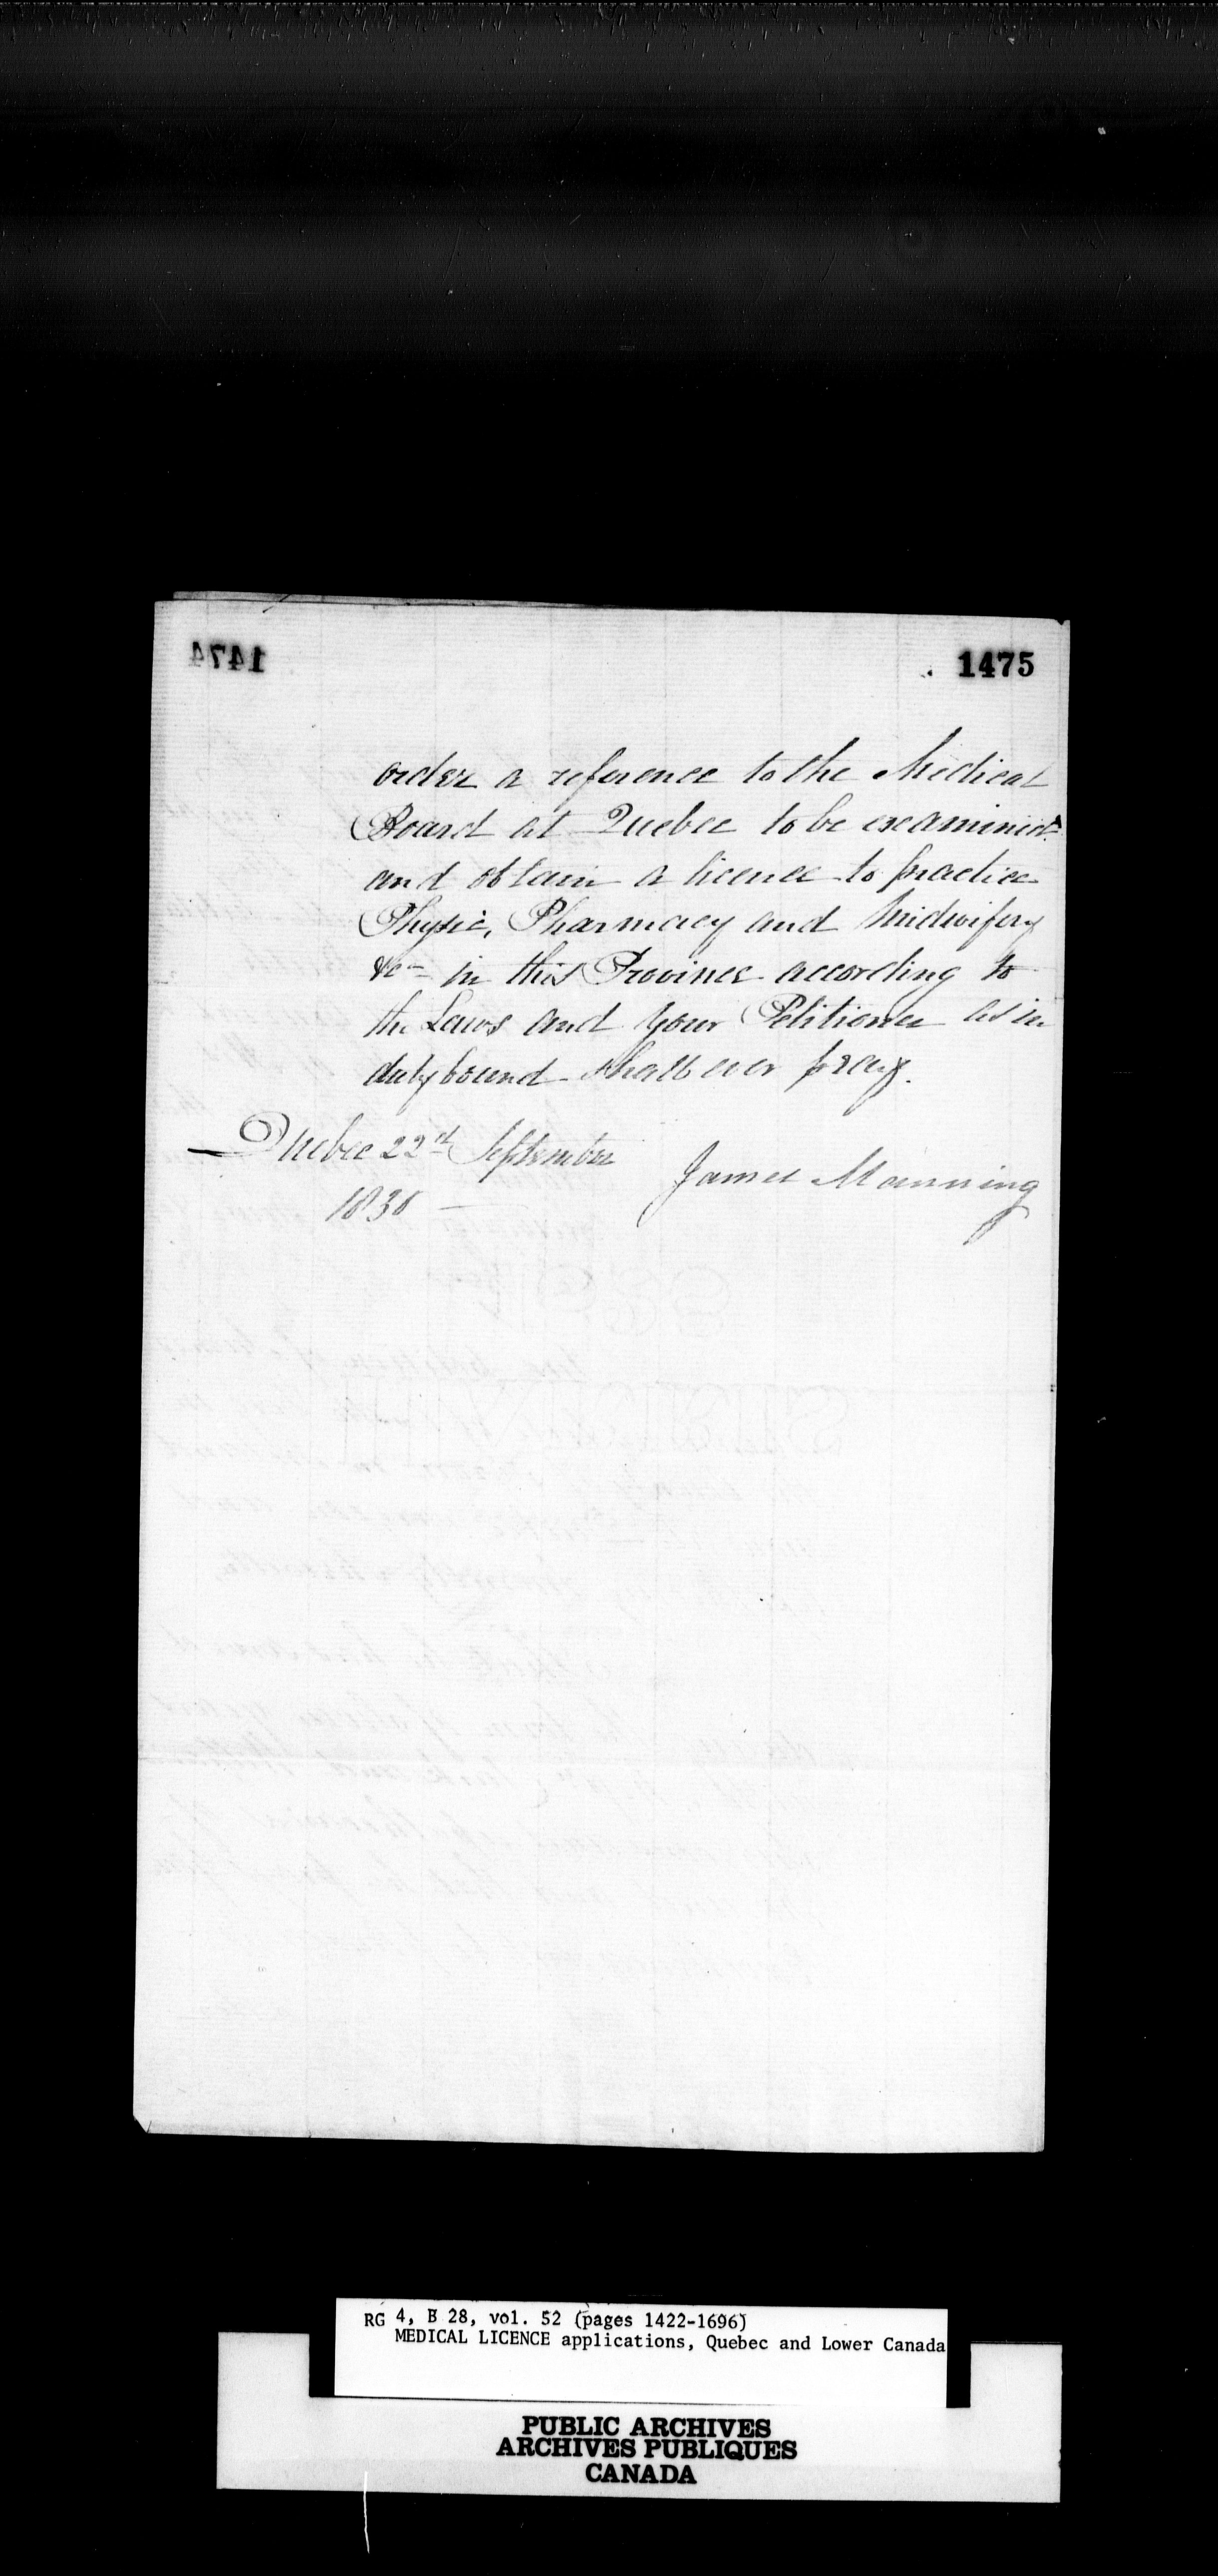 1474
1475
order a reference to the Medical
Board at Quebec to be examined
and obtain a licence to practice
Physic, Pharmacy and Midwifery
&c in this Province according to
the Laws and your Petitioner as in
duty bound shall ever pray.
Quebec 22d September
1830
James Manning
RG 4, B 28, vol. 52 (pages 1422-1696)
MEDICAL LICENCE applications, Quebec and Lower Canada
PUBLIC ARCHIVES
ARCHIVES PUBLIQUES
CANADA